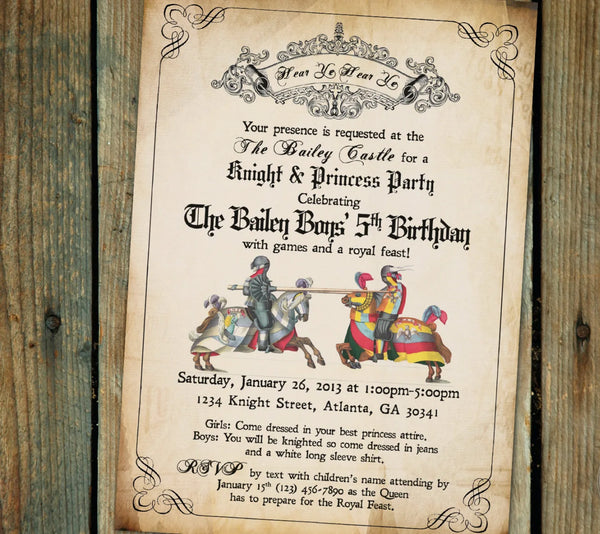 Hear Ye Hear Ye
Your presence is requested at the
The Bailey Castle for a
Knight & Princess Party
Celebrating
The Bailey Boys' 5th Birthday
with games and a royal feast!
Saturday, January 26, 2013 at 1:00pm-5:00pm
1234 Knight Street, Atlanta, GA 30341
Girls: Come dressed in your best princess attire.
Boys: You will be knighted so come dressed in jeans
and a white long sleeve shirt.
RSVP by text with children's name attending by
January 15th (123) 456-7890 as the Queen
has to prepare for the Royal Feast.